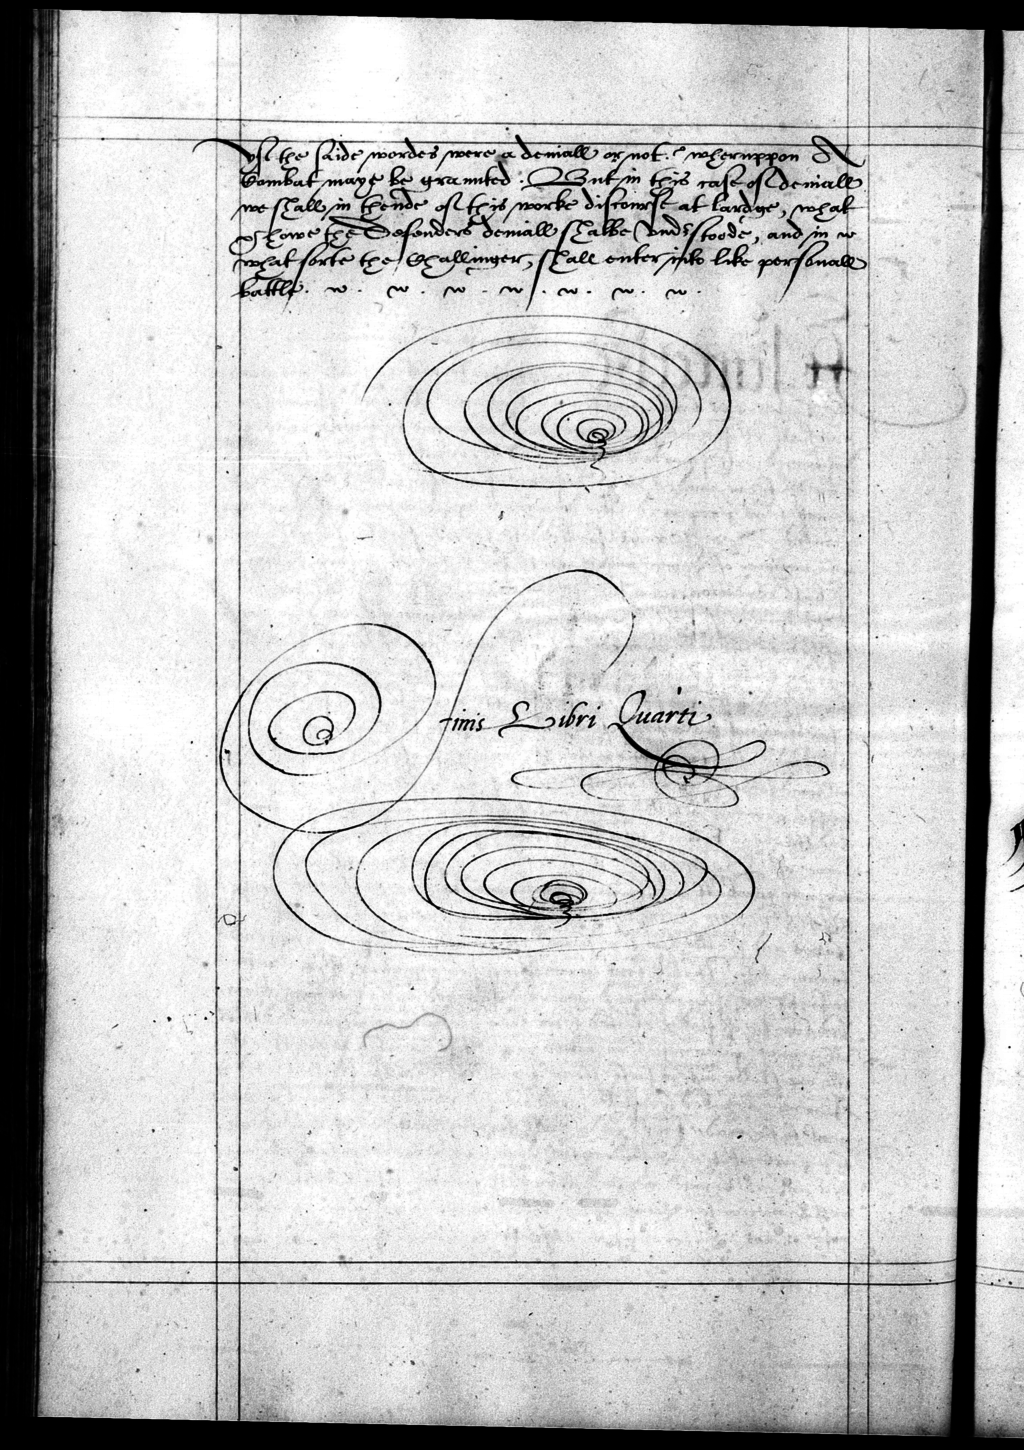 yf the saide wordes were a deniall or not? wheruppon A
Combat maye be graunted. But in this case of deniall
we shall in thende of this worke discourse at lardge, what
& howe the Defenders deniall shalbe understoode, and in
what sorte the Challinger, shall enter into like personall
battle.
Finis Libri Quarti